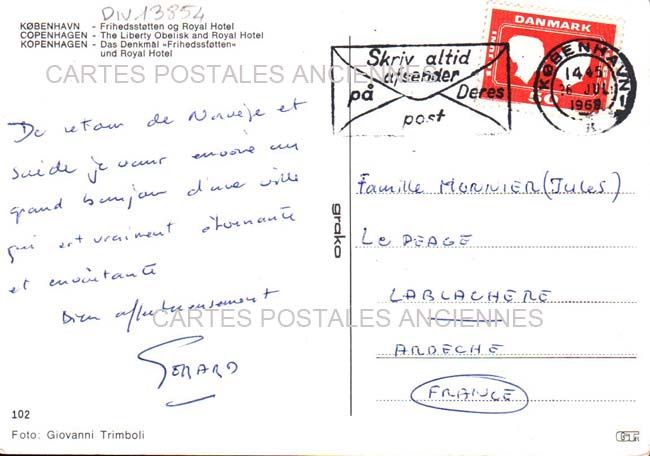 DIV.13854
KØBENHAVN - Frihedsstøtten og Royal Hotel
COPENHAGEN - The Liberty Obelisk and Royal Hotel
KOPENHAGEN - Das Denkmal »Frihedssføtten«
und Royal Hotel
CARTES POSTALES ANCIENNES
De retour de Norvèje et
suède je vous envoie un
grand bonjour d'une ville
qui est vraiment étonnante
et envoûtante
bien affectueusement
GERARD
102
Foto: Giovanni Trimboli
grako
Skriv altid
afsender
på Deres
post
DANMARK
JUNI
50
KØBENHAVN
14.45
JUL
Famille MONNIER (Jules)
Le PEAGE
LABLACHERE
CARTES POSTALES ANCIENNES
ARDECHE
FRANCE